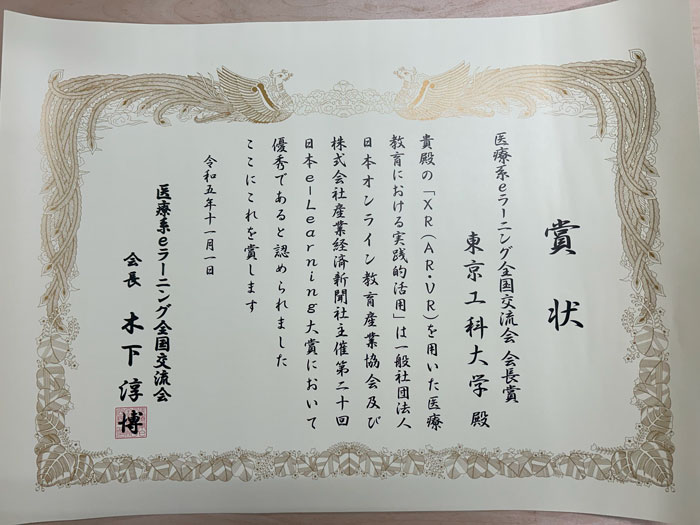 賞状
医療系eラーニング全国交流会 会長賞
東京工科大学 殿
貴殿の「XR(AR・VR)を用いた医療
教育における実践的活用」は一般社団法人
日本オンライン教育産業協会及び
株式会社産業経済新聞社主催第二十回
日本e-Learning大賞において
優秀であると認められました
ここにこれを賞します
令和五年十一月一日
医療系eラーニング全国交流会
会長 木下淳博